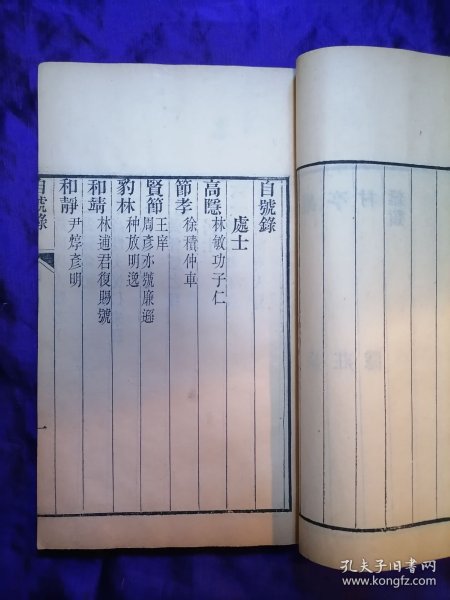 自號錄
處士
高隱 林敏功子仁
節孝 徐積仲車
賢節 王庠
周彥亦號廉遜
豹林 种放明逸
和靖 林逋君復賜號
和靜 尹焞彥明
自號錄 一
孔夫子旧书网
www.kongfz.com